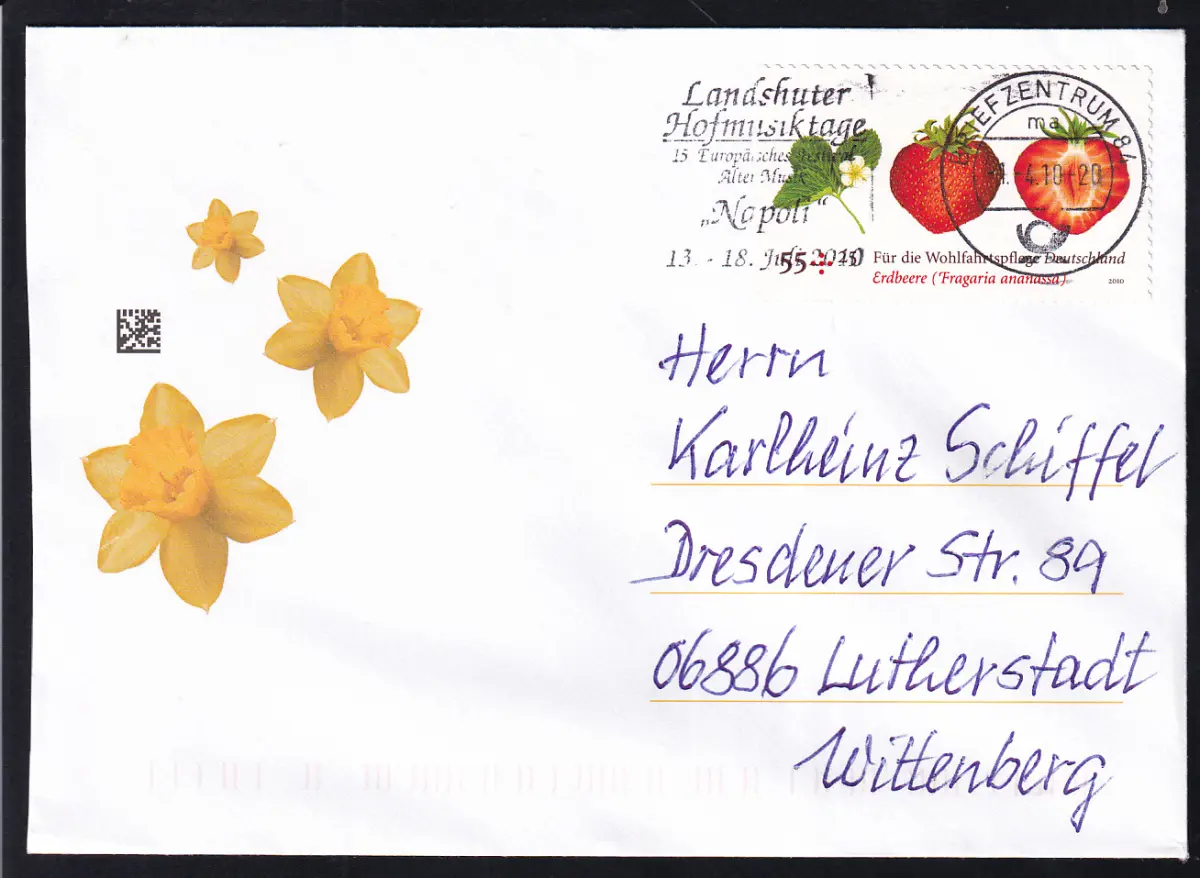 Landshuter
Hofmusiktage
15 Europäisches Festival
Alter Musik
„Napoli“
13. - 18. Juli 2010
BRIEFZENTRUM 84
ma
-4.10-20
55+25 Für die Wohlfahrtspflege Deutschland
Erdbeere (Fragaria ananassa)
2010
Herrn
Karlheinz Schiffel
Dresdener Str. 89
06886 Lutherstadt
Wittenberg